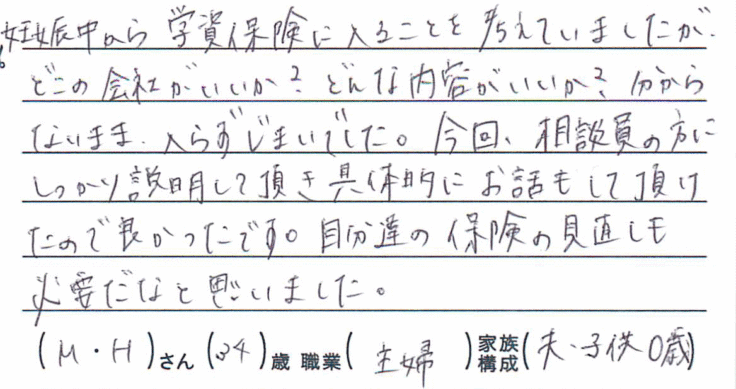 妊娠中から学資保険に入ることを考えていましたが、
どこの会社がいいか?どんな内容がいいか?分から
ないまま、入らずじまいでした。今回、相談員の方に
しっかり説明して頂き具体的にお話もして頂け
たので良かったです。自分達の保険の見直しも
必要だなと思いました。
(M・H)さん(34)歳 職業(主婦)家族構成(夫・子供0歳)